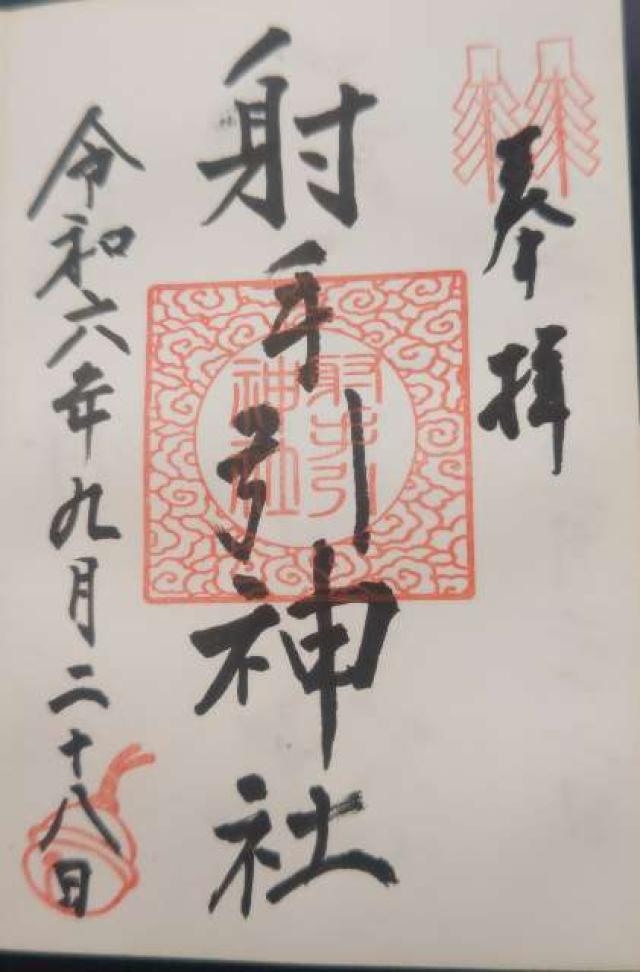 奉拝
射手引神社
射手引
神社
令和六年九月二十八日